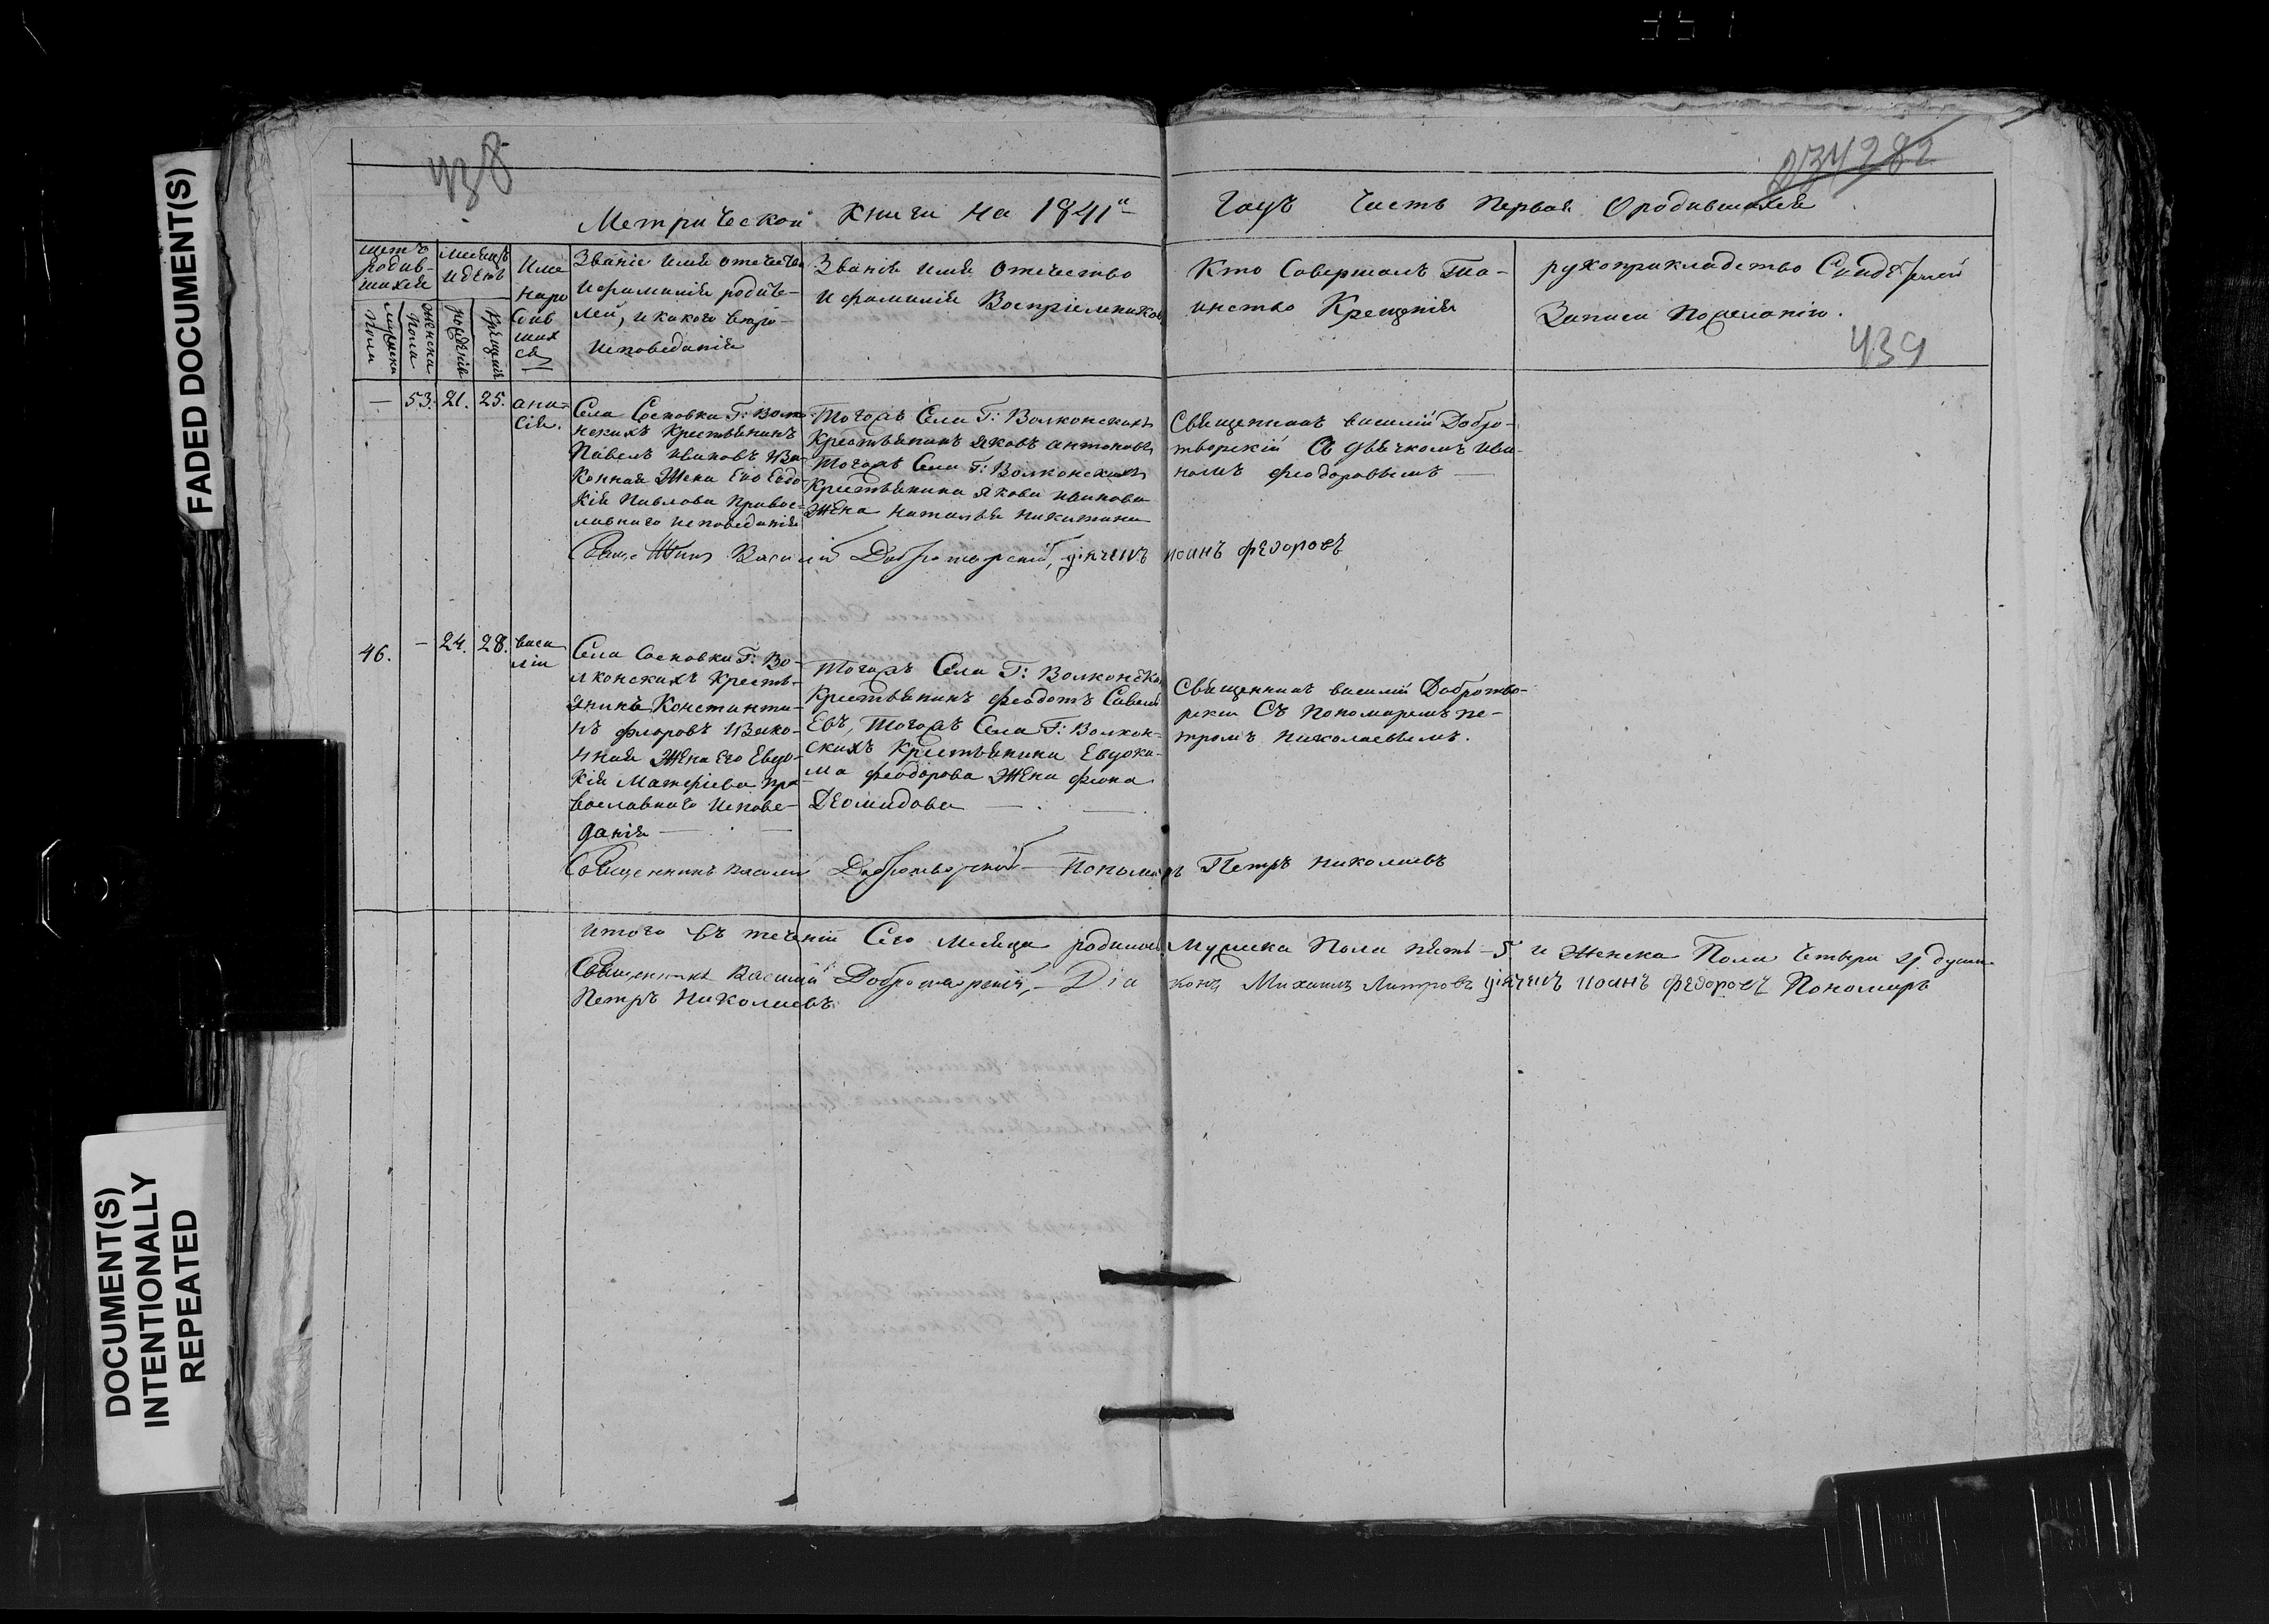 438
234 282
Метрической Книги на 1841й
Годъ Часть Первая О родившихся
щетъ родив-шихся
мужеска пола
женска пола
Месяцъ и день
рожденiя
крещенiя
Име на ро див ших ся
Званiе имя отечество
и фамилiя родите-
лей, и какого веро-
исповеданiя
Званiе имя Отечество
и фамилiя Воспрiемниковъ
Кто Совершалъ Та-
инство Крещенiя
рукоприкладство Свидетелей
Записи По желанiю.
439
— 53. 21. 25. ани-
сiя.
Села Сосновки Г: Волко-
нскихъ Крестьянинъ
Павелъ Ивановъ и За-
конная Жена Его Евдо-
кiя Павлова Правос-
лавнаго исповеданiя
Тогожъ Села Г: Волконскихъ
Крестьянинъ Яковъ Антоновъ
Тогожъ Села Г: Волконскихъ
Крестьянина Якова Иванова
Жена Наталья Никитина
Священникъ василiй Добро-
творскiй Съ дьячкомъ Ива-
номъ феодоровымъ —
Священникъ Василiй Добротворскiй, дьячекъ иоанъ федоровъ
46. — 24. 28. васи
лiи
Села Сосновки Г: Во-
лконскихъ Кресть-
янинъ Константи-
нъ флоровъ и Зако-
нная Жена Его Евдо-
кiя Матфiева пра
вославнаго испове-
данiя —
Тогожъ Села Г: Волконска
Крестьянинъ феодотъ Савель
Евъ, Тогожъ Села Г: Волкон-
скихъ Крестьянина Евдоки-
ма феодорова Жена феона
Деомидова —
Священникъ василiй Добротво-
рскiи Съ пономаремъ пе-
тромъ николаевымъ.
Священникъ Василiй Добротворскiй — Пономарь Петръ николаевъ
Итого въ теченiи Сего месяца родилось Мужеска Пола пять — 5 и Женска Пола Четыри 4. души
Священникъ Василiй Добротворскiй, — Дiаконъ Михаилъ Митровъ дьячекъ иоанъ федоровъ Пономарь
Петръ Николаевъ
FADED DOCUMENT(S)
DOCUMENT(S)
INTENTIONALLY
REPEATED